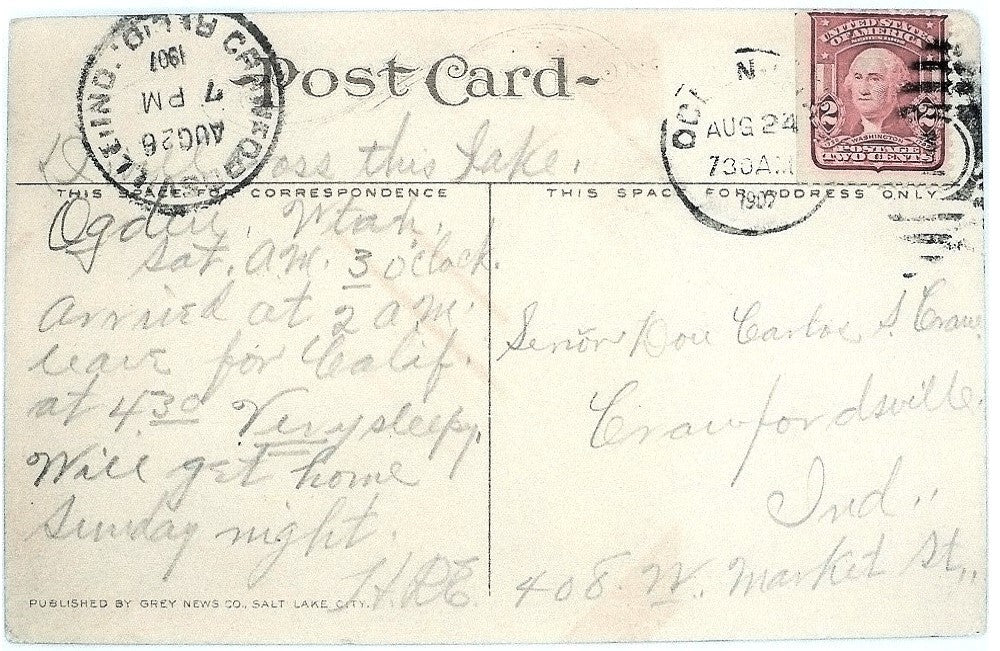 Post Card
CRAWFORDSVILLE, IND.
REC'D.
AUG 26
7 PM
1907
AUG 24
7 30 AM
1907
UNITED STATES
OF AMERICA
2 2
WASHINGTON
POSTAGE
TWO CENTS
cross this lake.
THIS SPACE FOR CORRESPONDENCE
THIS SPACE FOR ADDRESS ONLY
Ogden, Utah.
Sat. A.M. 3 o'clock.
Arrived at 2 a M.
leave for Calif.
at 4 30 Very sleepy.
Will get home
Sunday night.
Señor Don Carlos
Crawfordsville.
Ind.
408 W. Market St.,
PUBLISHED BY GREY NEWS CO., SALT LAKE CITY.